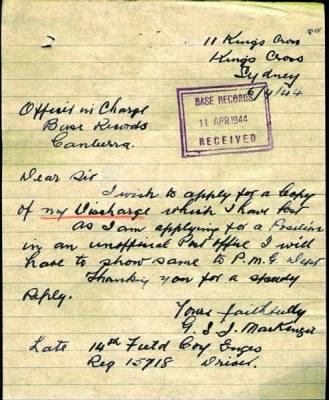 11 Kings Cross
Kings Cross
Sydney
6/4/44
BASE RECORDS
11 APR 1944
RECEIVED
Officer in Charge
Base Records
Canberra.
Dear Sir
I wish to apply for a Copy
of my Discharge which I have lost
As I am applying for a Position
in an unofficial Post office I will
have to show same to P.M.G Dept
Thanking you for a speedy
reply.
Yours faithfully
G. I. J. MacKenzie
Late 14th Field Coy Engrs
Reg 15718 Driver.